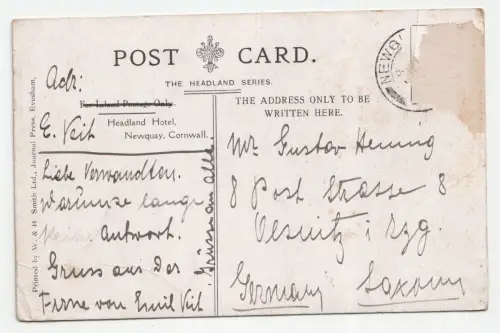 POST CARD.
THE HEADLAND SERIES.
For Inland Postage Only.
Adr:
E. Veit
Headland Hotel,
Newquay, Cornwall.
Liebe Verwandten.
Warum so lange
keine Antwort.
Gruss aus der
Ferne von Emil Veit
Grüsse an alle
Printed by W. & H Smith Ltd., Journal Press, Evesham.
THE ADDRESS ONLY TO BE
WRITTEN HERE.
NEWQ
Mr Gustav Hennig
8 Post Strasse 8
Oelsnitz i Erzg.
Germani Saxoni